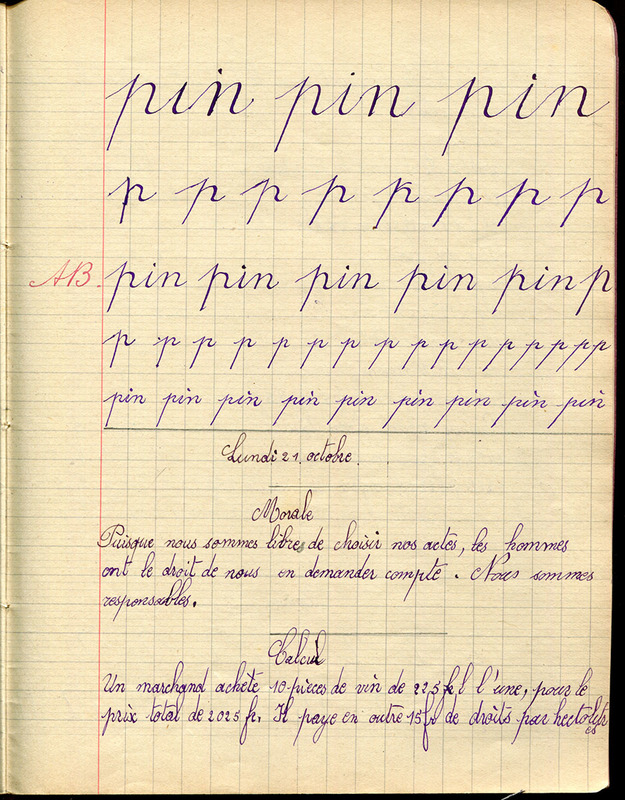 pin pin pin
p p p p p p p p
AB. pin pin pin pin pin p
p p p p p p p p p p p p p p p
pin pin pin pin pin pin pin pin pin
Lundi 21 octobre.
Morale
Puisque nous sommes libres de choisir nos actes, les hommes
ont le droit de nous en demander compte. Nous sommes
responsables.
Calcul
Un marchand achète 10 pièces de vin de 225 l l'une, pour le
prix total de 2025 fr. Il paye en outre 15 fr de droits par hectolitres